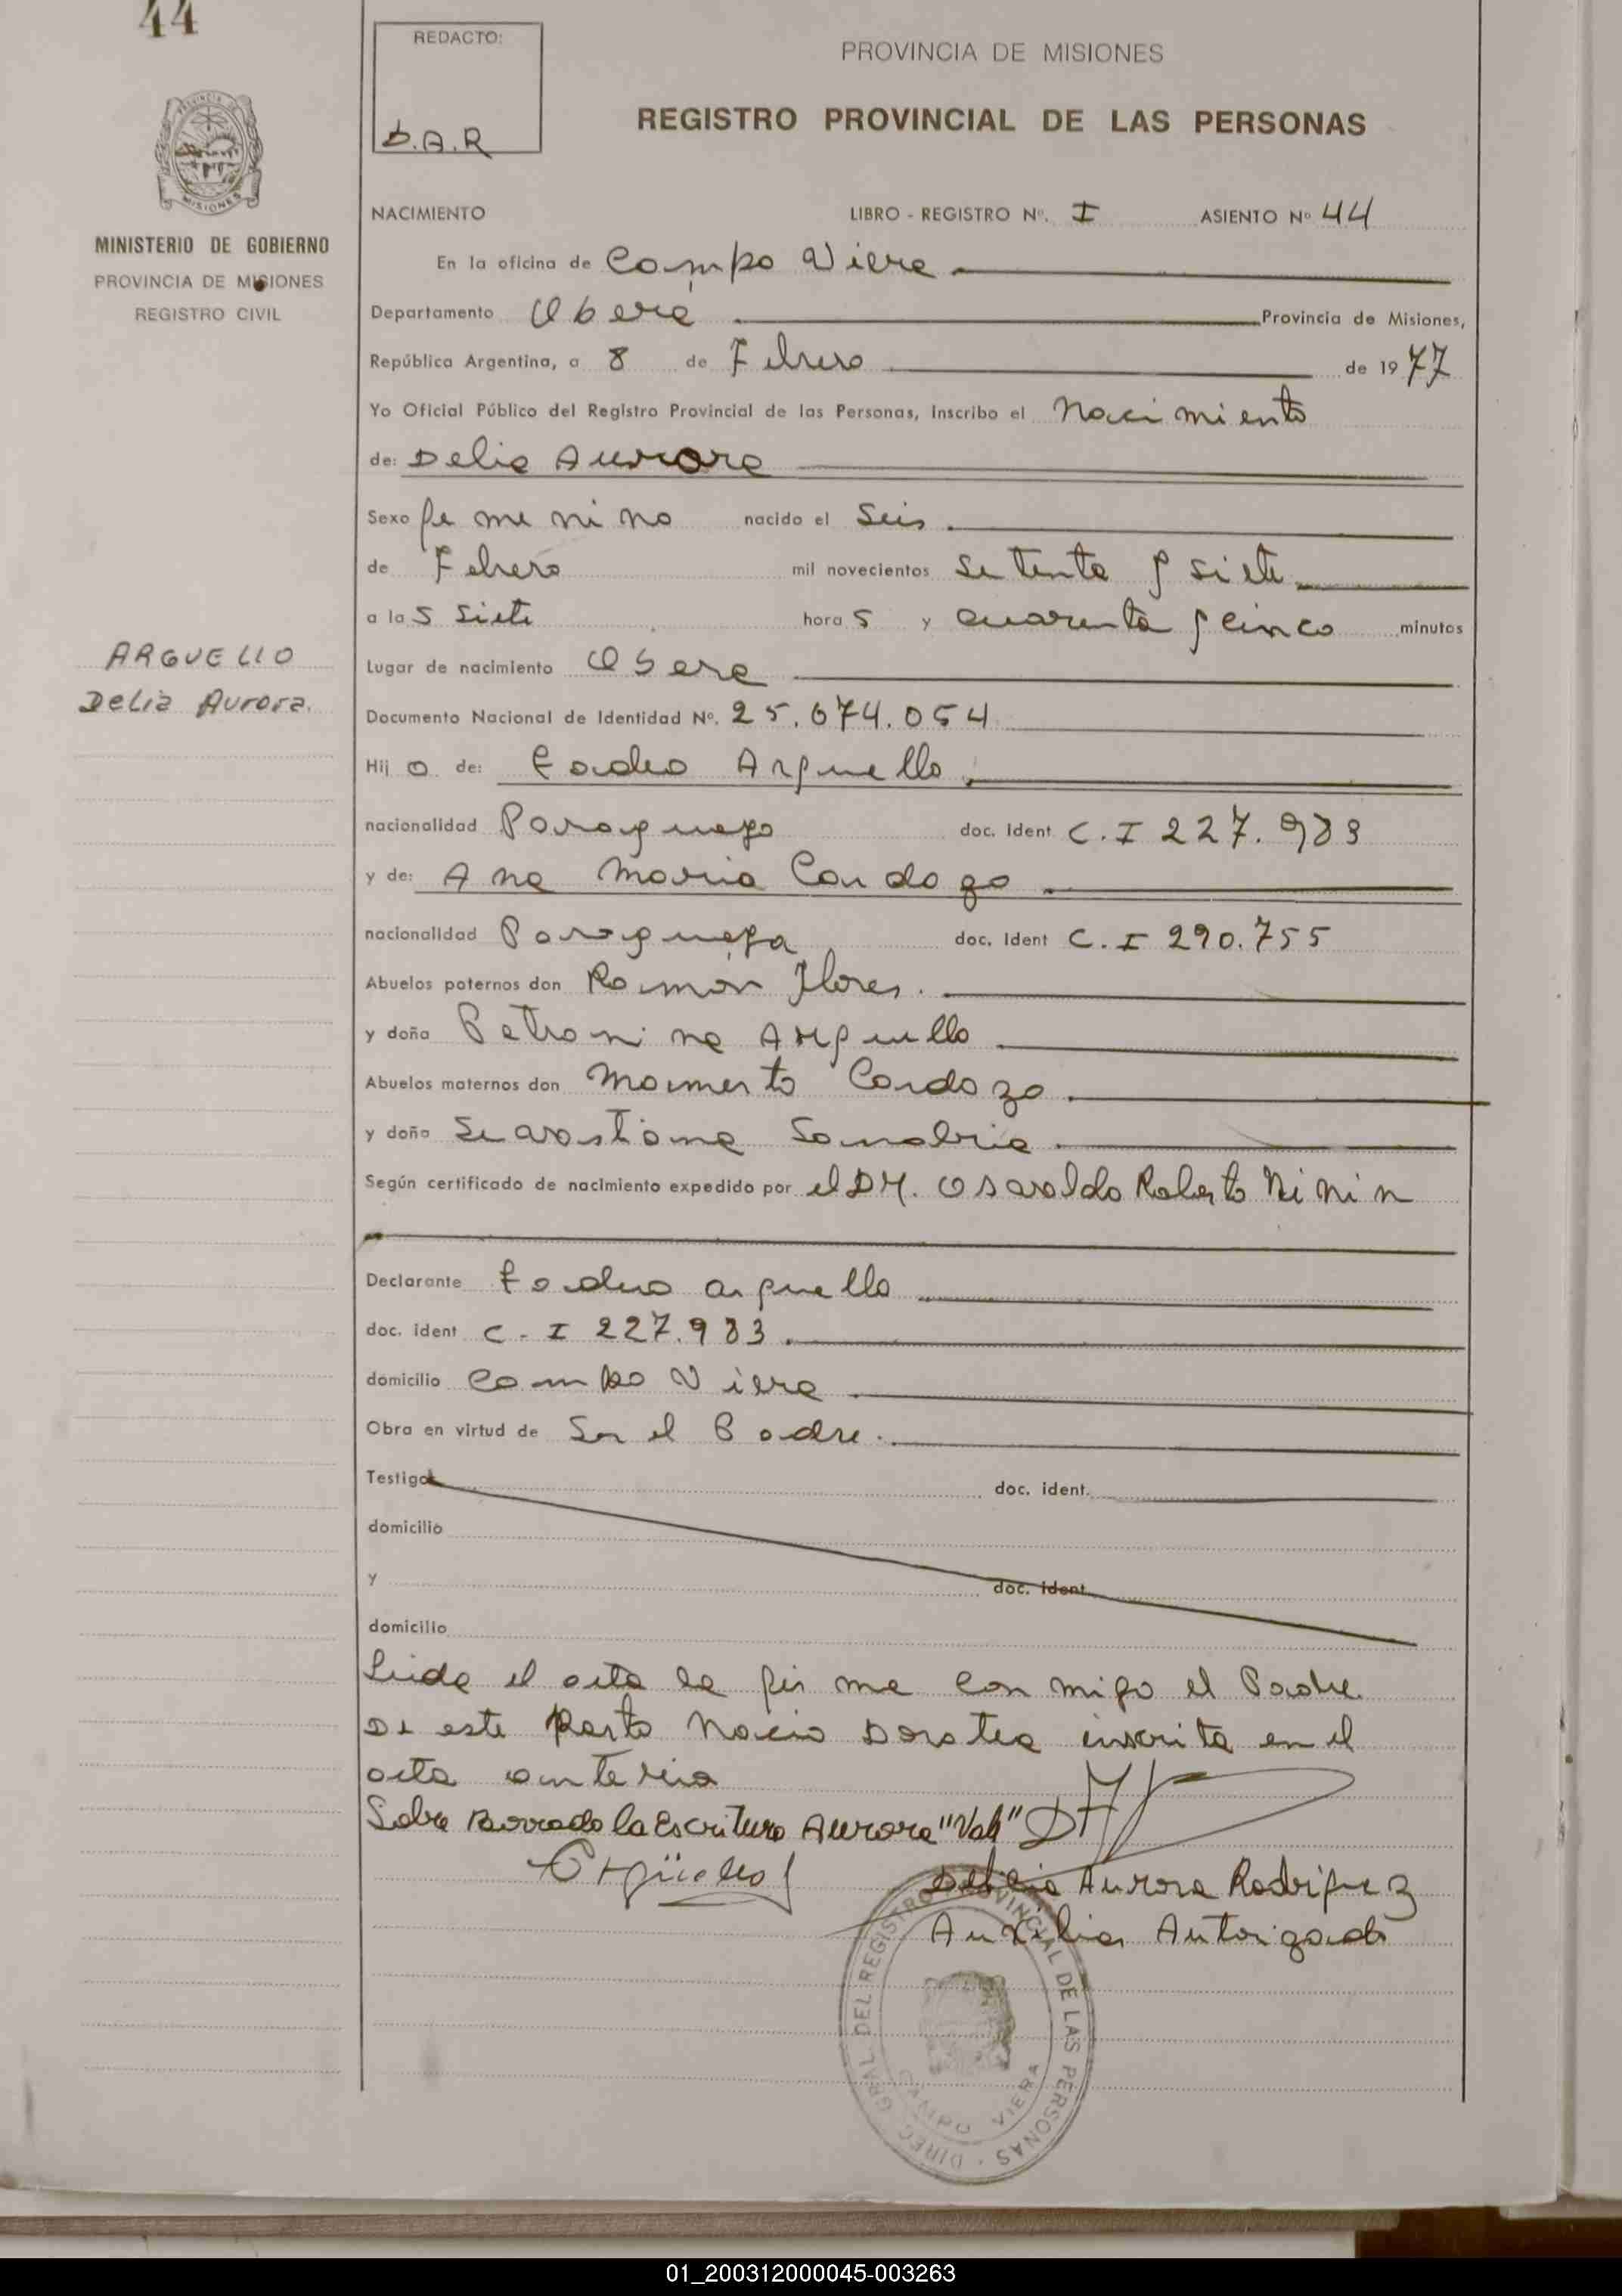 44
REDACTO:
D.A.R
PROVINCIA DE MISIONES
REGISTRO PROVINCIAL DE LAS PERSONAS
MISIONES
MINISTERIO DE GOBIERNO
PROVINCIA DE MISIONES
REGISTRO CIVIL
ARGUELLO
Delia Aurora.
NACIMIENTO LIBRO - REGISTRO Nº. I ASIENTO Nº 44
En la oficina de Campo Viera
Departamento Oberá Provincia de Misiones,
República Argentina, a 8 de Febrero de 1977
Yo Oficial Público del Registro Provincial de las Personas, inscribo el Nacimiento
de: Delia Aurora
Sexo femenino nacido el Seis
de Febrero mil novecientos setenta y siete
a las siete horas y cuarenta y cinco minutos
Lugar de nacimiento Obera
Documento Nacional de Identidad Nº. 25.674.054
Hijo de: Tadeo Arguello
nacionalidad Paraguayo doc. ident. C.I 227.983
y de: Ana Maria Cardozo
nacionalidad Paraguaya doc. ident C.I 290.755
Abuelos paternos don Ramón Flores.
y doña Petronina Arguello
Abuelos maternos don Mamerto Cardozo
y doña Sevastiana Sanabria
Según certificado de nacimiento expedido por el Dr. Osvaldo Roberto Ninin
Declarante Tadeo arguello
doc. ident C.I 227.983
domicilio Campo Viera
Obra en virtud de Ser el Padre.
Testigos doc. ident.
domicilio
y doc. ident.
domicilio
Leida el acta la firma con migo el Padre
De este Parto Nacio Dorotea inscrita en el
acta anteria
Sobre Borrado la Escritura Aurora "Vale"
Delia Aurora Rodriguez
Auxiliar Autorizada
DIREC. GRAL. DEL REGISTRO PROVINCIAL DE LAS PERSONAS
CAMPO VIERA
01_200312000045-003263